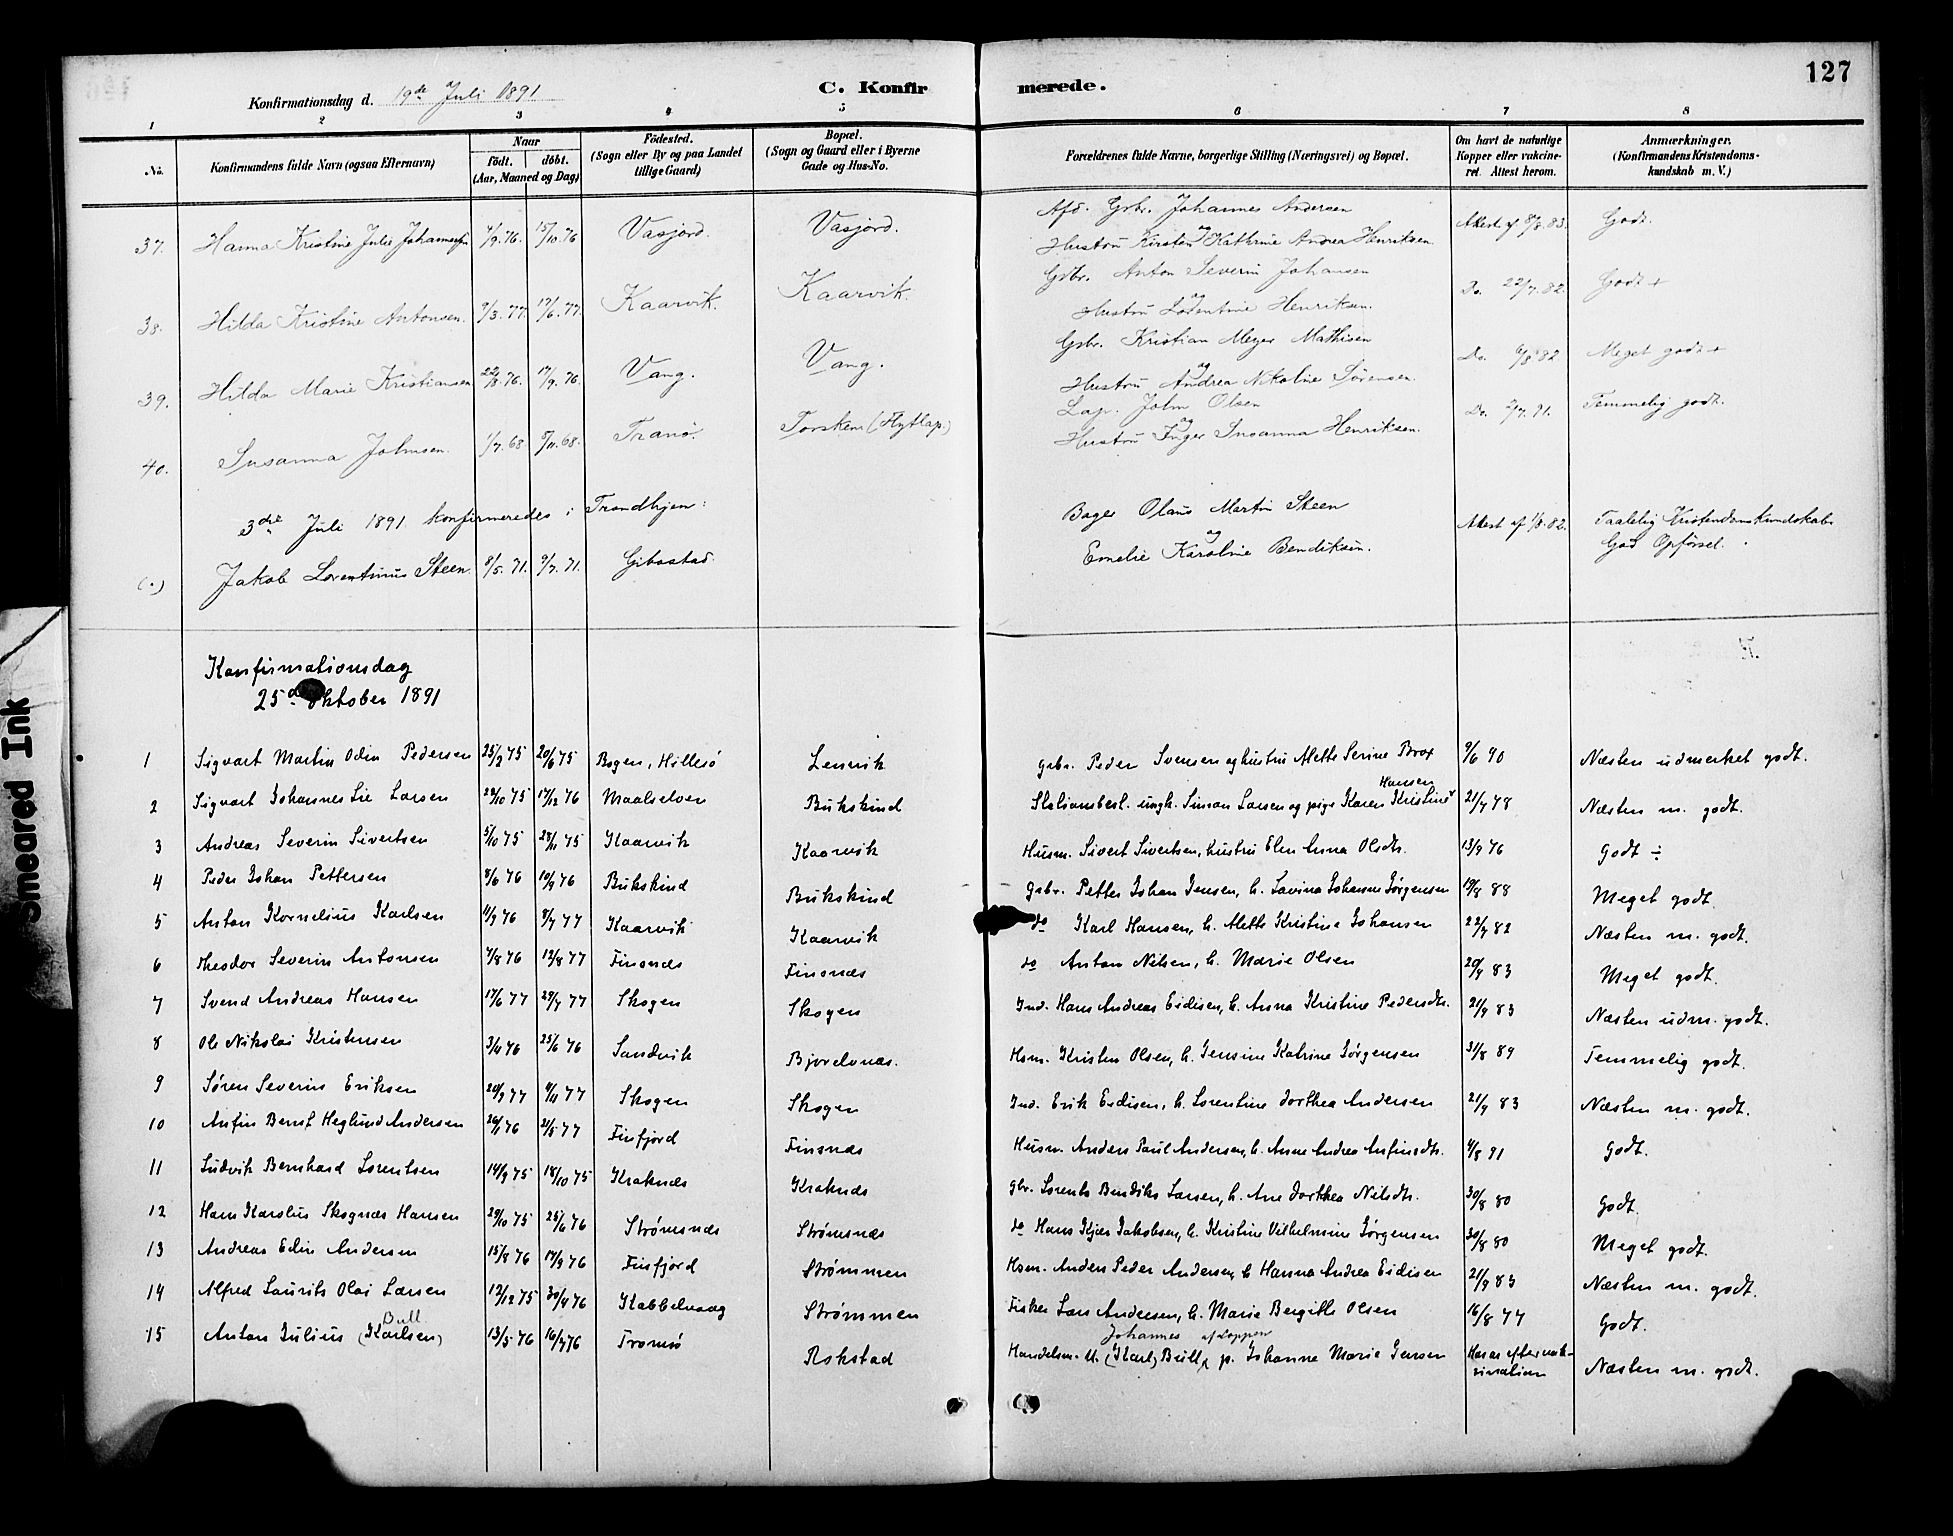 127
Konfirmationsdag d. 19de Juli 1891
C. Konfirmerede.
1 2 3 4 5 6 7 8
No. Konfirmandens fulde Navn (ogsaa Efternavn) Naar födt. döbt. (Aar, Maaned og Dag) Födested. (Sogn eller By og paa Landet tillige Gaard) Bopæl. (Sogn og Gaard eller i Byerne Gade og Hus-No. Forældrenes fulde Navne, borgerlige Stilling (Næringsvei) og Bopæl. Om havt de naturlige Kopper eller vakcineret. Attest herom. Anmærkninger. (Konfirmandens Kristendomskundskab m. V.)
37. Hanna Kristine Julie Johannesen 4/9.76. 15/10.76 Vasjord. Vasjord. Afd. Gsbr. Johannes Andersen og Hustru Kirsten Kathrine Andrea Henriksen. Attest af 8/8.83. Godt.
38. Hilda Kristine Antonsen. 9/3.77. 17/6.77. Kaarvik. Kaarvik. Gsbr. Anton Severin Johansen og Hustru Lorentine Henriksen. Do. 22/7.82. Godt +
39. Hilda Marie Kristiansen 22/8.76. 17/9.76. Vang. Vang. Gsbr. Kristian Meyer Mathisen og Hustru Andrea Nikoline Sørensen. Do. 6/8 82 Meget godt +
40. Susanna Johnsen. 1/7.68 8/11.68. Tranö. Torsken (Flytlap.) Lap. John Olsen og Hustru Inger Susanna Henriksen. Do. 2/7.91. Temmelig godt.
3die Juli 1891 konfirmeredes i Trondhjem:
(.) Jakob Lorentinus Steen 8/5.71. 9/7.71. Gibostad. Bager Olaus Martin Steen og Emelie Karoline Bendiksen. Attest af 1/8.82. Taalelig Kristendomskundskab. God Opførsel.
Konfirmationsdag
25de Oktober 1891
1 Sigvart Martin Odin Pedersen 25/2 75 20/6 75 Bogen, Hillesø Lenvik Gsbr. Peder Svensen og hustru Mette Serine Brox 9/6 90 Næsten udmerket godt.
2 Sigvart Johannes Lie Larsen 28/10 75 17/12 76 Maalselven Bukskind Stationsbest. ungk. Simon Larsen og pige Karen Kristine Hansen 21/7 78 Næsten m. godt.
3 Andreas Severin Sivertsen 5/10 75 28/11 75 Kaarvik Kaarvik Husm. Sivert Sivertsen, hustru Elen Anna Olsdtr. 13/9 76 Godt ÷
4 Peder Johan Pettersen 8/6 76 10/9 76 Bukskind Bukskind Gsbr. Petter Johan Jensen, h. Lavina Johanne Jørgensen 19/8 88 Meget godt.
5 Anton Kornelius Karlsen 11/9 76 8/7 77 Kaarvik Kaarvik do Karl Hansen, h. Mette Kristine Johansen 22/7 82 Næsten m. godt.
6 Theodor Severin Antonsen 7/8 76 12/8 77 Finsnæs Finsnæs do Anton Nilsen, h. Marie Olsen 20/9 83 Meget godt.
7 Svend Andreas Hansen 17/6 77 29/7 77 Skogen Skogen Ind. Hans Andreas Eidisen, h. Anna Kristine Pedersdtr. 21/9 83 Næsten udm. godt.
8 Ole Nikolai Kristensen 3/4 76 25/6 76 Sandvik Bjorelvnæs. Hsm. Kristen Olsen, h. Jensine Katrine Jørgensen 31/8 89 Temmelig godt.
9 Søren Severin Eriksen 20/9 77 4/11 77 Skogen Skogen Ind. Erik Eidisen, h. Lorentine Dorthea Andersen 21/9 83 Næsten m. godt.
10 Anfin Bernt Heglund Andersen 26/1 76 21/5 77 Finfjord Finsnæs Husm. Anders Paul Andersen, h. Anne Andrea Anfinsdtr. 4/8 91 Godt.
11 Ludvik Bernhard Lorentsen 14/9 75 18/10 75 Kraknæs Kraknæs Gbr. Lorents Bendiks Larsen, h. Ane Dorthea Nilsdtr. 30/8 80 Godt.
12 Hans Karolus Skognæs Hansen 29/10 75 25/6 76 Strømsnæs Strømsnæs do Hans Kjær Jakobsen, h. Kristine Vilhelmine Jørgensen 30/8 80 Meget godt.
13 Andreas Edin Andersen 15/8 76 17/9 76 Finfjord Strømmen Hsm. Anders Peder Andersen, h Hanna Andrea Eidisen 21/9 83 Næsten m. godt.
14 Alfred Laurits Olai Larsen 12/12 75 30/4 76 Kabbelvaag Strømmen Fisker Lars Andersen, h. Marie Bergitte Olsen 16/8 77 Godt.
15 Anton Julius (Karlsen) Bull 13/5 76 16/7 76 Tromsø Rokstad Handelsm. u. (Karl) Johannes Bull af Loppen, p. Johanne Marie Jensen Har ar efter vaksination Næsten m. godt.
Smeared Ink